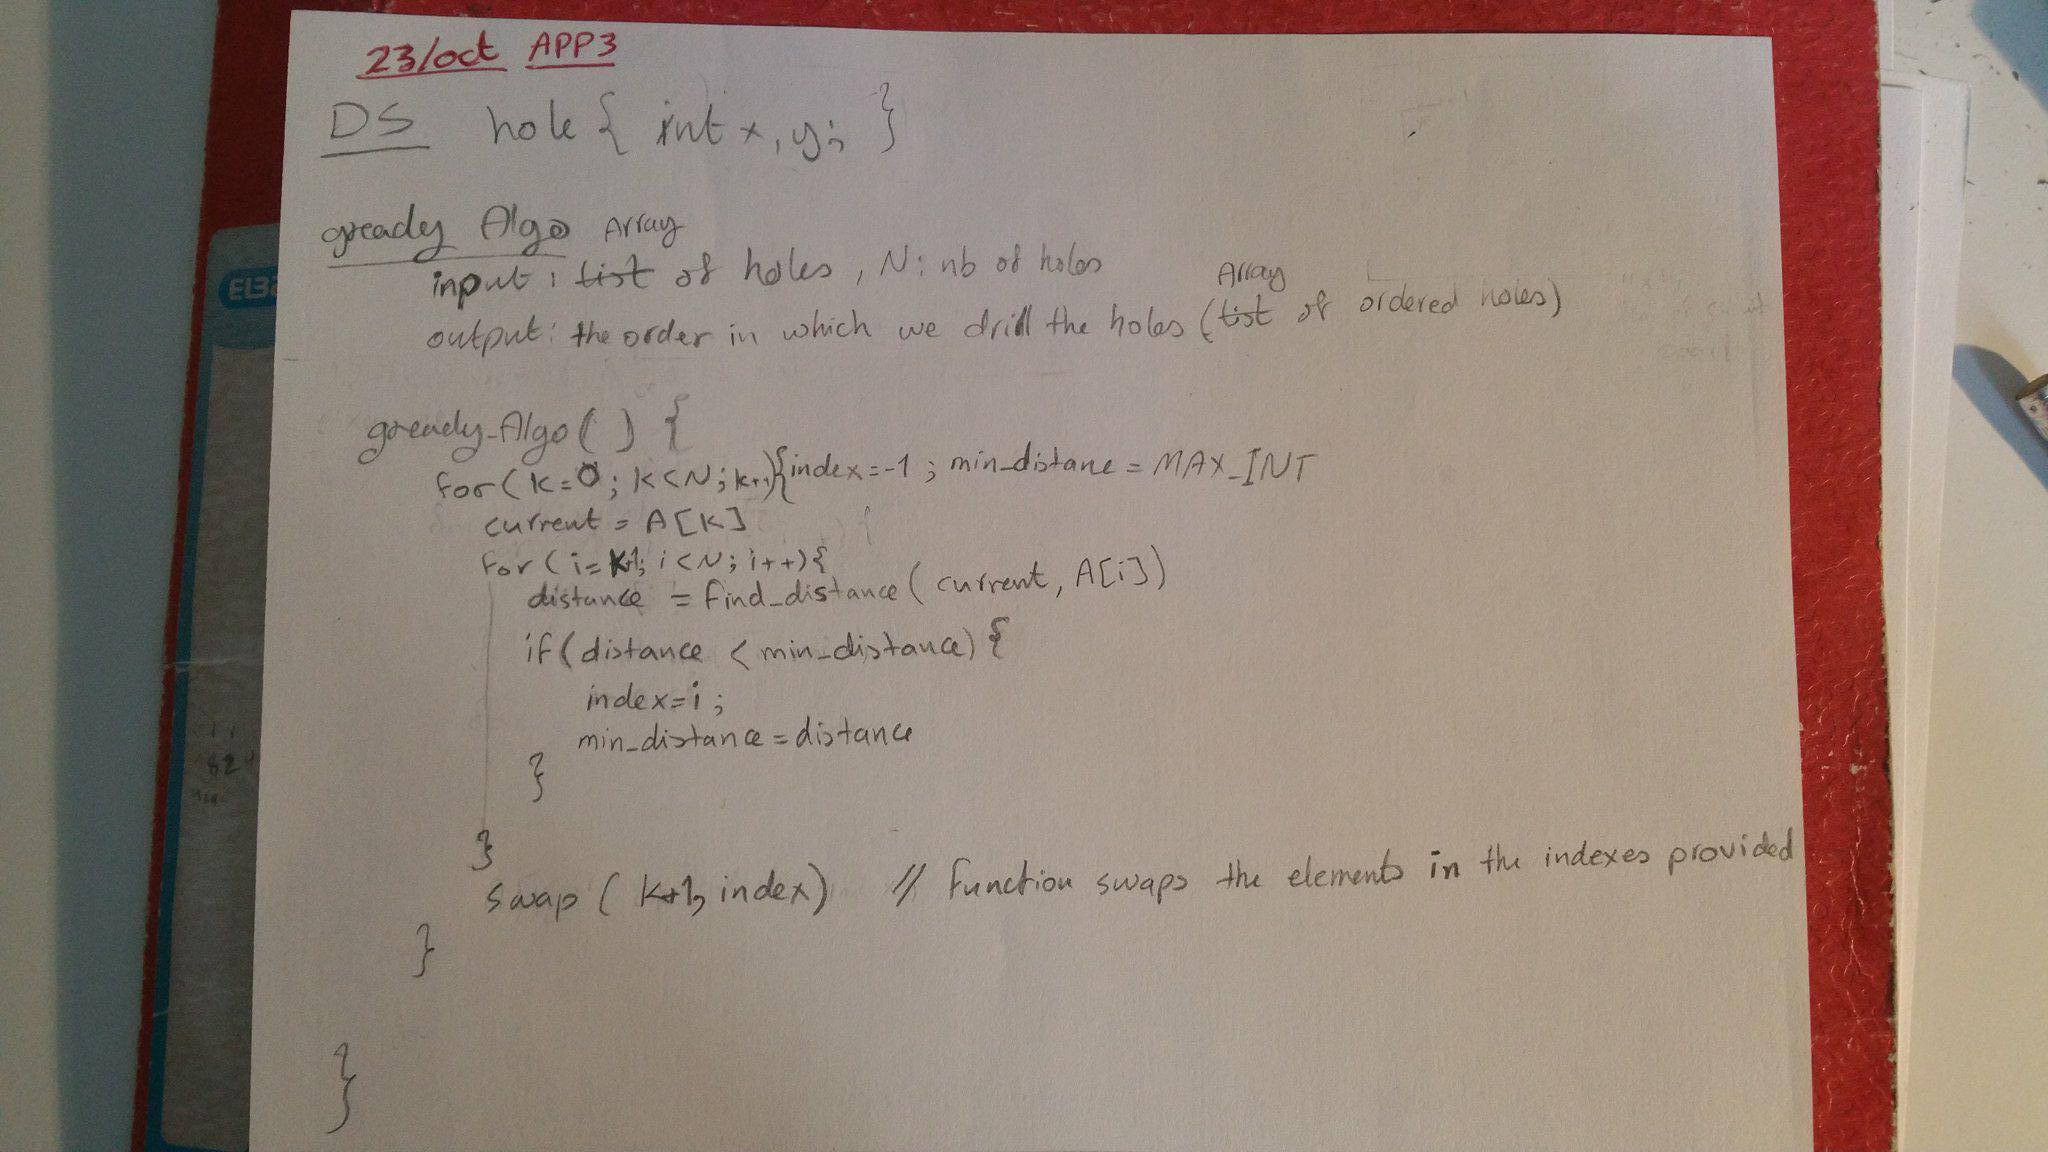 23/oct APP3
DS hole { int x, y; }
gready Algo
Array
input : list of holes, N: nb of holes
Array
output: the order in which we drill the holes (list of ordered holes)
gready_Algo( ) {
for( k=0; k<N; k++){ index=-1 ; min_distane = MAX_INT
current = A[k]
for( i=k+1; i<N; i++){
distance = find_distance( current, A[i])
if( distance < min_distance) {
index=i ;
min_distance = distance
}
}
swap ( k+1, index) // function swaps the elements in the indexes provided
}
}